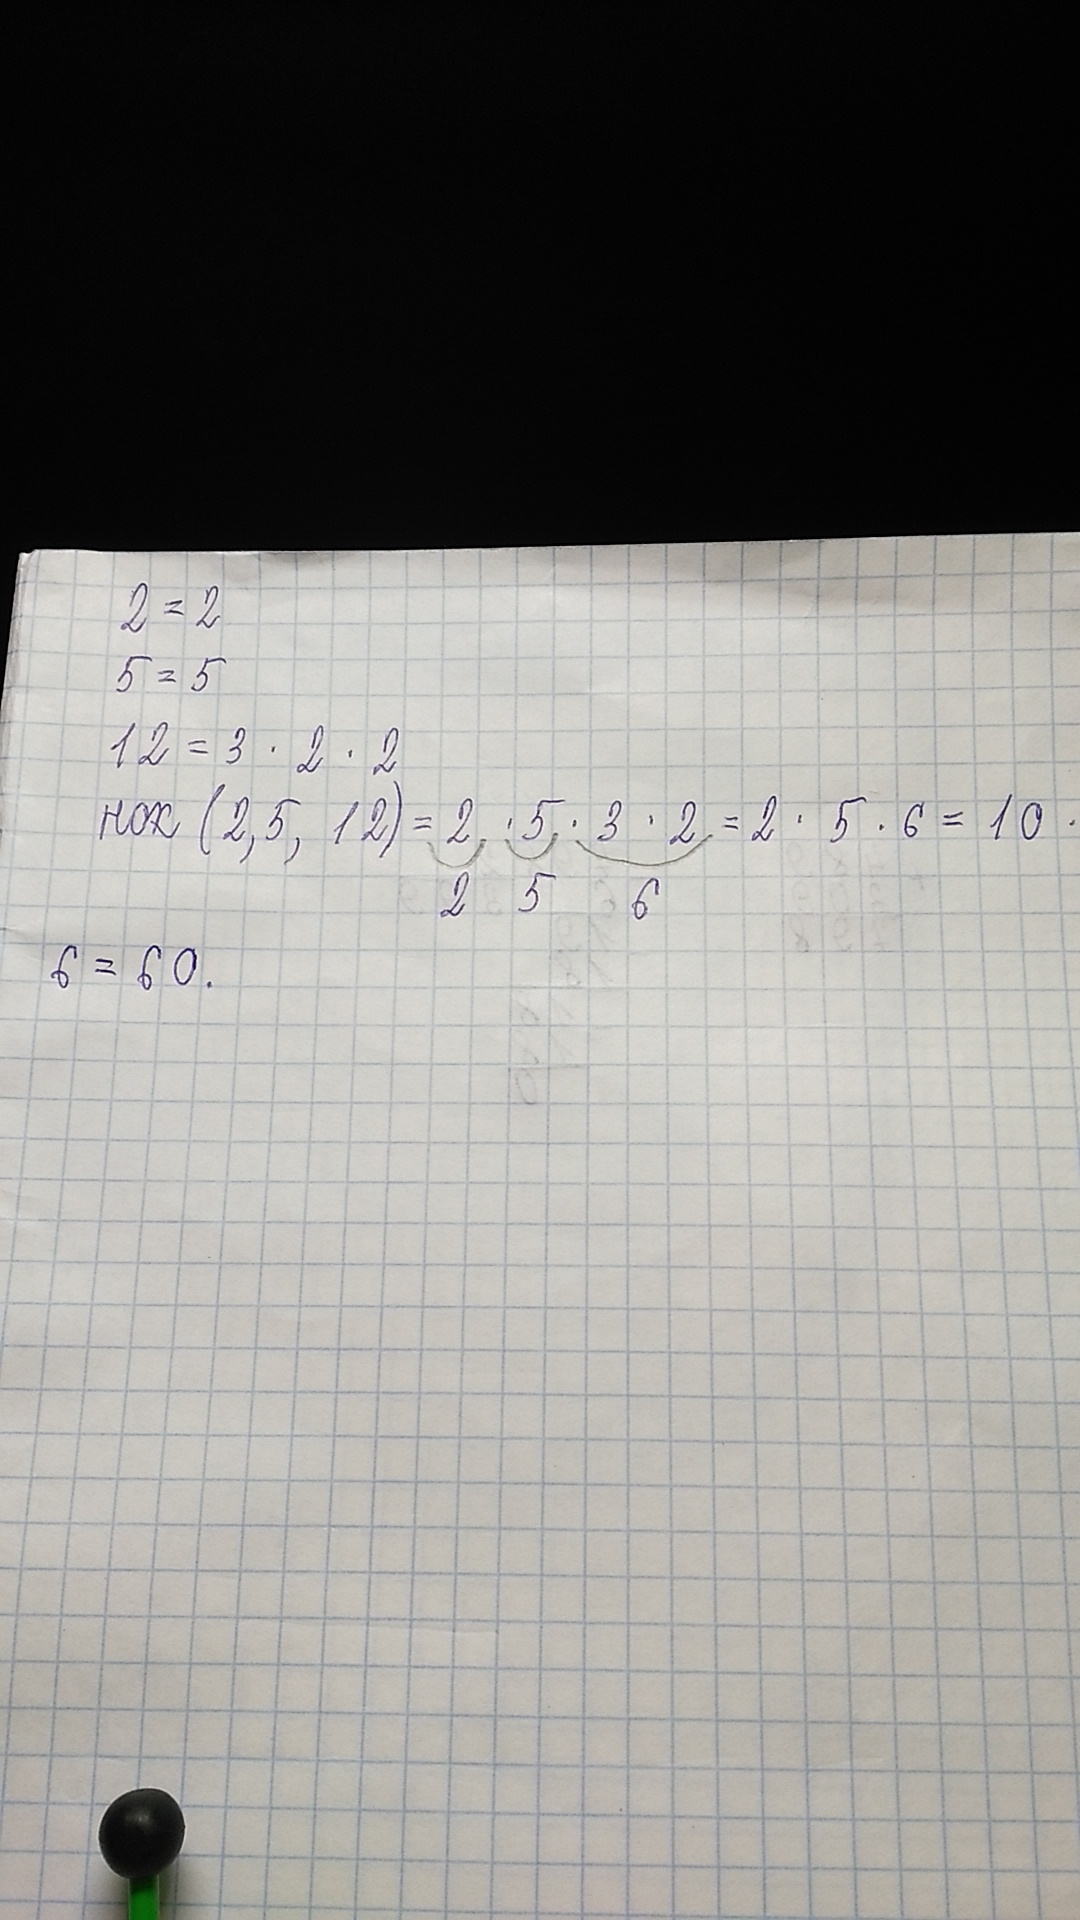 2 = 2
5 = 5
12 = 3 · 2 · 2
нок (2,5, 12) = 2 · 5 · 3 · 2 = 2 · 5 · 6 = 10 ·
2 5 6
6 = 60.